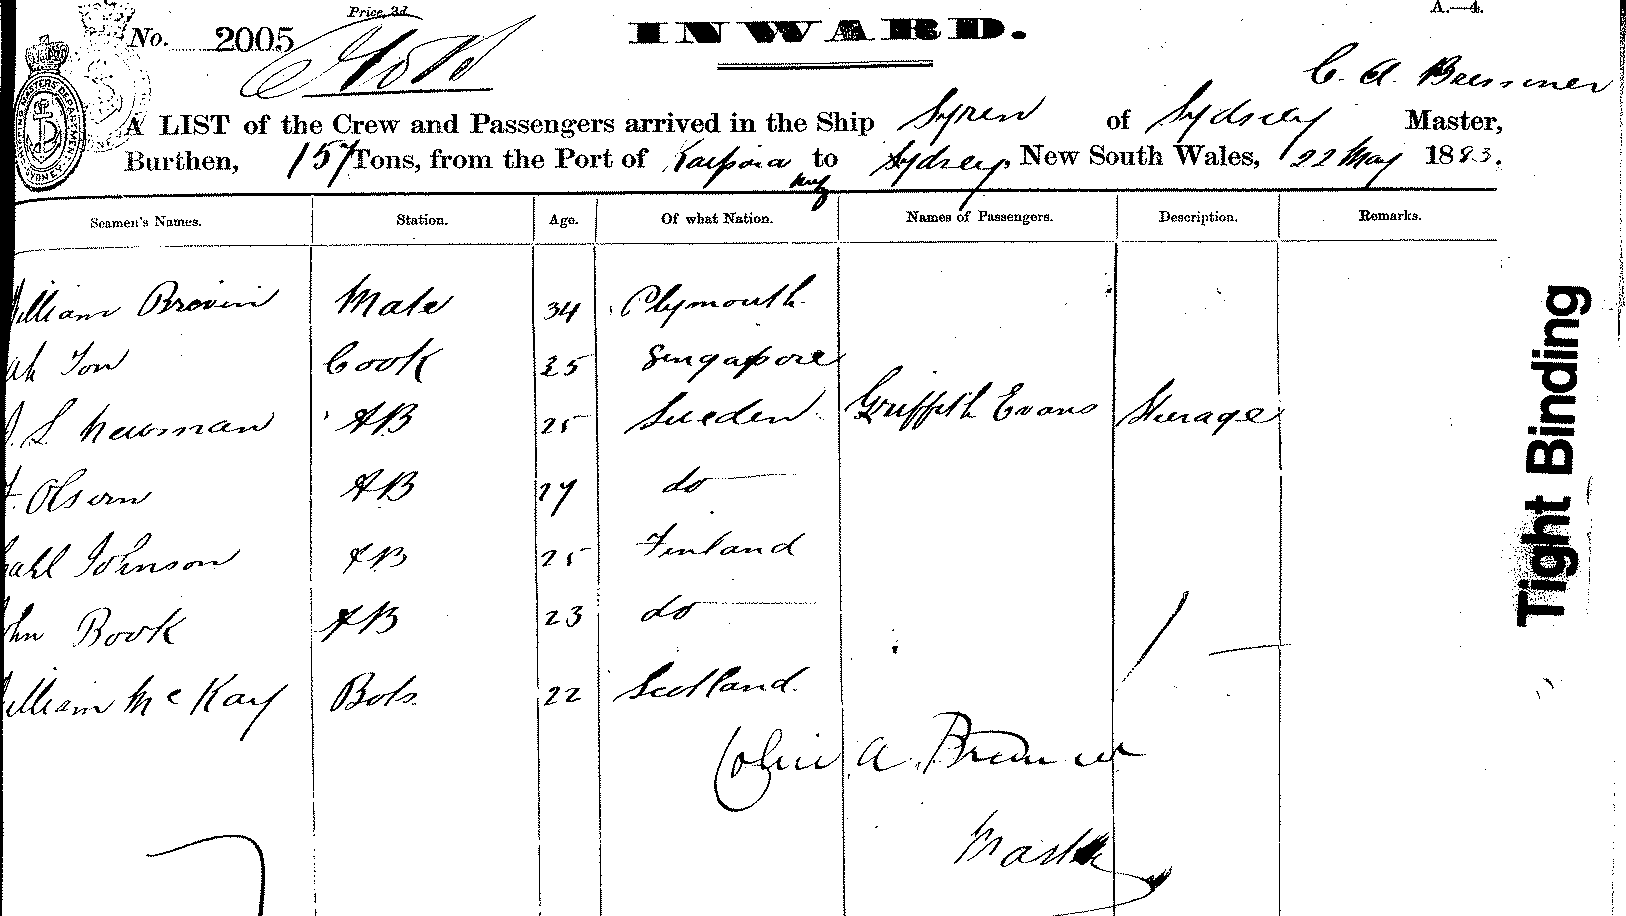 Price, 3d. A.—4.
No. 2005 INWARD.
C. A.
A LIST of the Crew and Passengers arrived in the Ship Syren of Sydney Master,
Burthen, 157 Tons, from the Port of Kaipara to Sydney, New South Wales, 22 May 1883.
Seamen's Names. Station. Age. Of what Nation. Names of Passengers. Description. Remarks.
William Brown Mate 34 Plymouth
Ah Cook Singapore
S Newman AB 25 Sweden Griffith Evans Steerage
Olsern AB do
Johnson AB 25 Finland
John Book AB 23 do
William McKay Bots 22 Scotland.
Colin A.
Master
Tight Binding